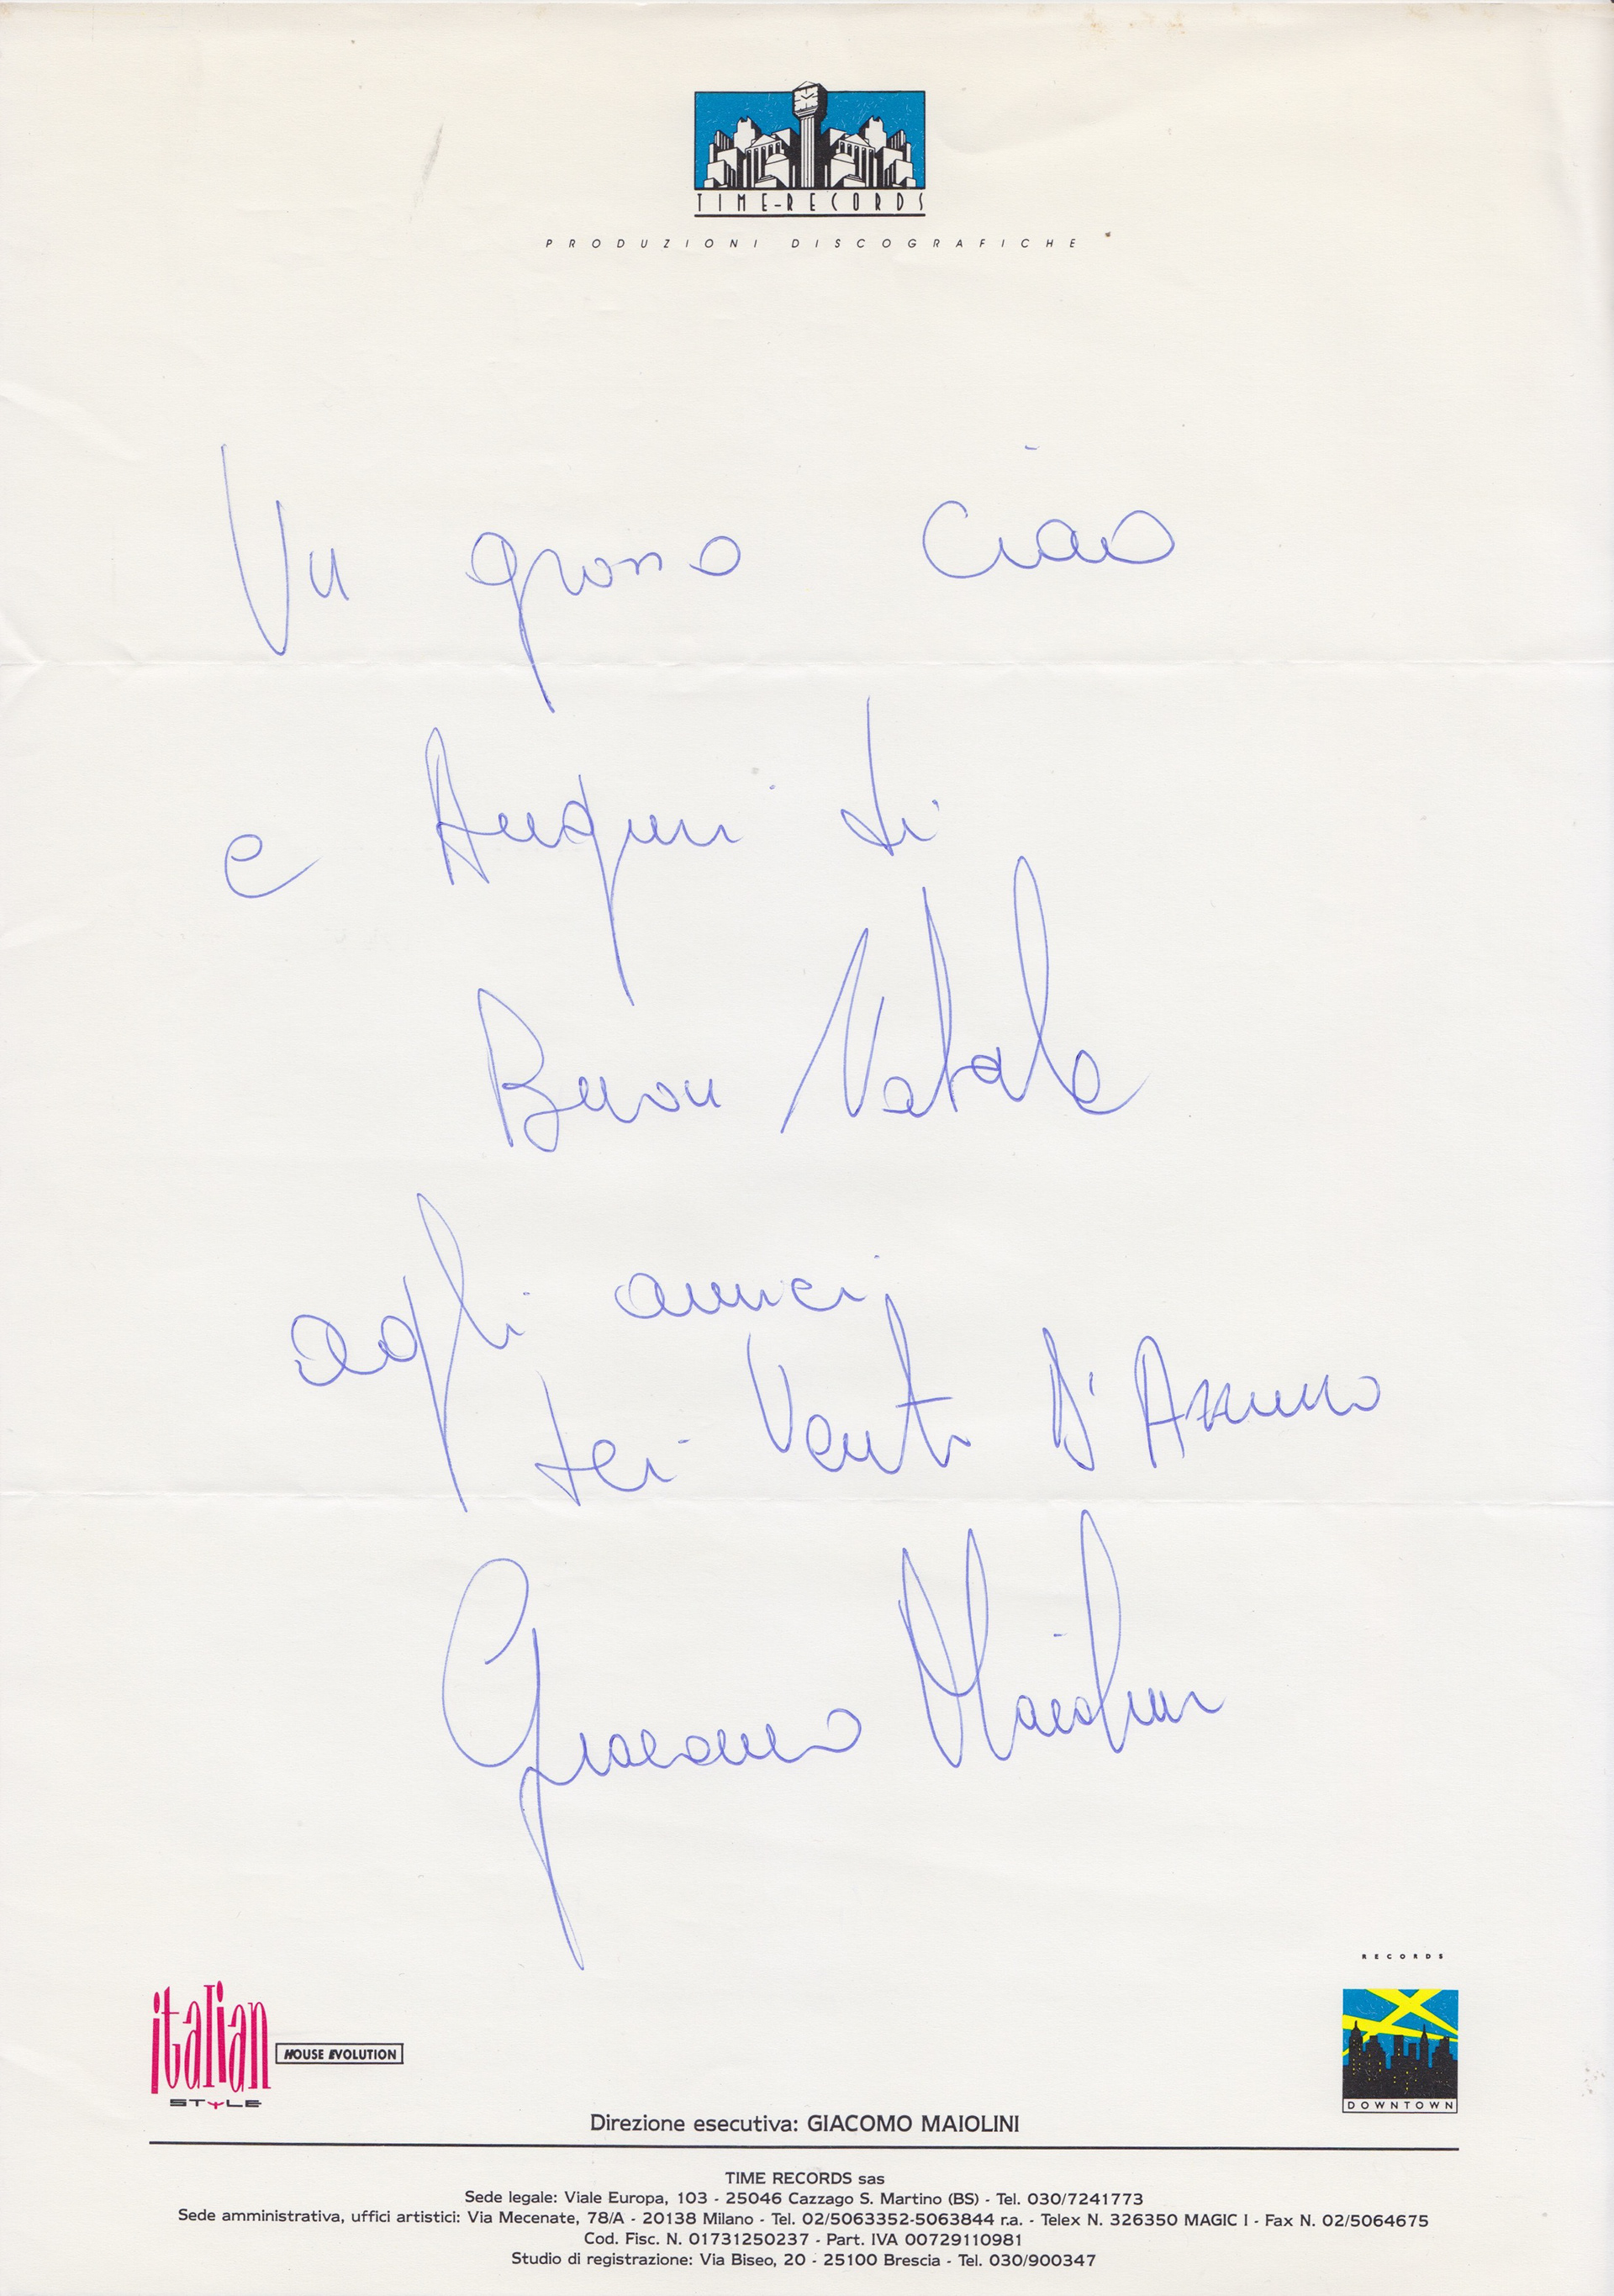 TIME-RECORDS
PRODUZIONI DISCOGRAFICHE
Un grosso Ciao
e Auguri di
Buon Natale
agli amici
dei Venti D'Azzurro
Giacomo Maiolini
RECORDS
italian
STYLE
HOUSE EVOLUTION
DOWNTOWN
Direzione esecutiva: GIACOMO MAIOLINI
TIME RECORDS sas
Sede legale: Viale Europa, 103 - 25046 Cazzago S. Martino (BS) - Tel. 030/7241773
Sede amministrativa, uffici artistici: Via Mecenate, 78/A - 20138 Milano - Tel. 02/5063352-5063844 r.a. - Telex N. 326350 MAGIC I - Fax N. 02/5064675
Cod. Fisc. N. 01731250237 - Part. IVA 00729110981
Studio di registrazione: Via Biseo, 20 - 25100 Brescia - Tel. 030/900347